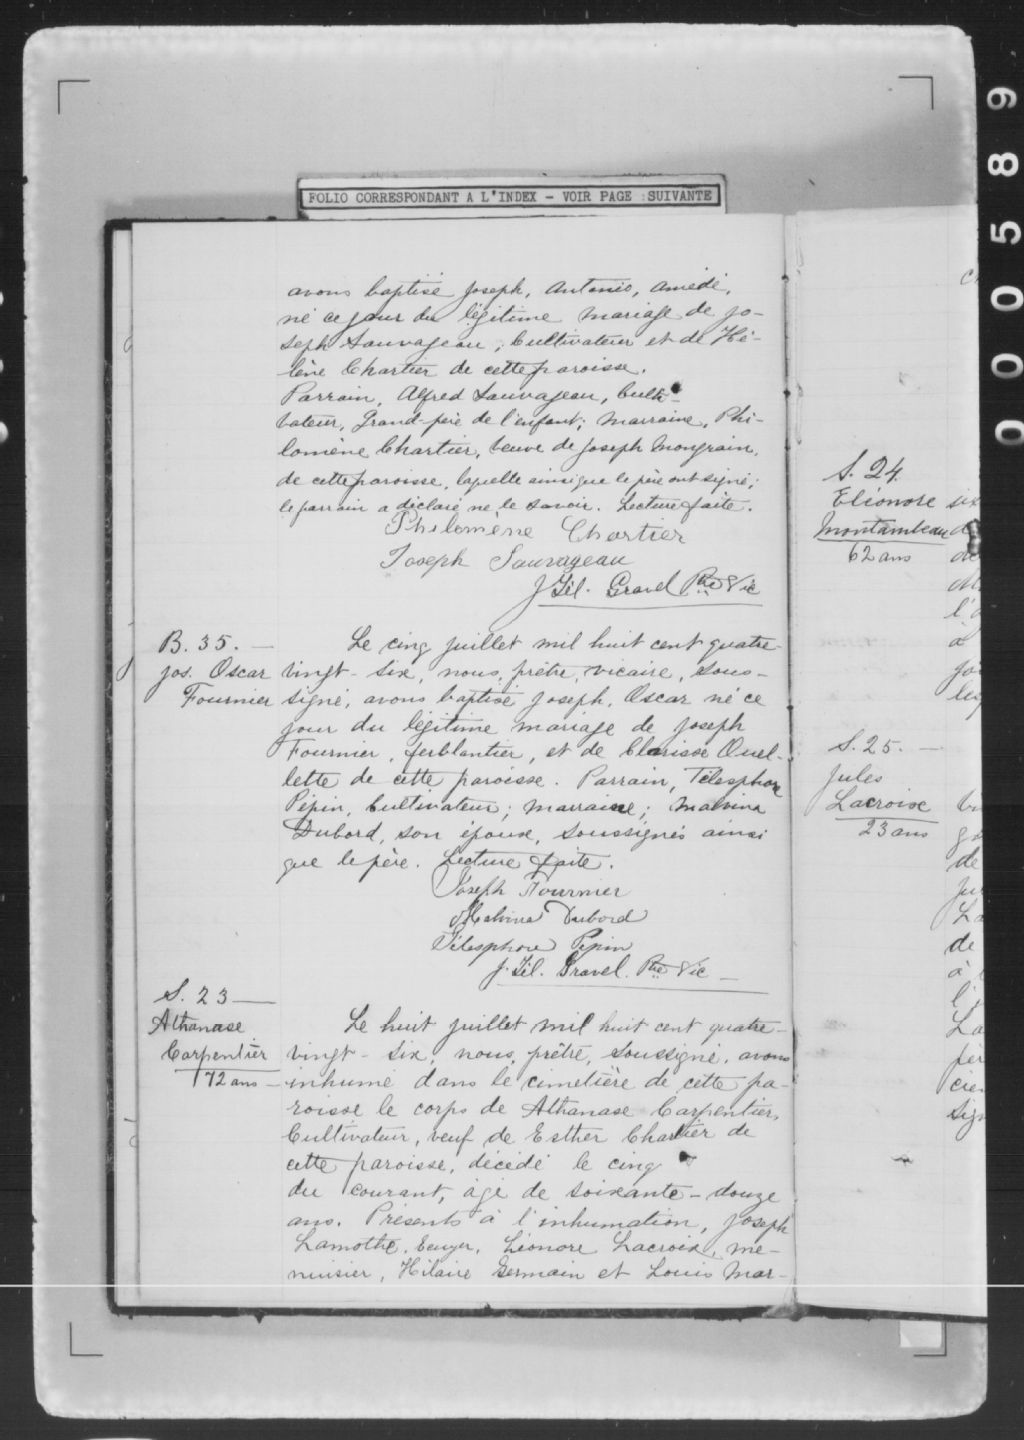 000589
FOLIO CORRESPONDANT A L'INDEX - VOIR PAGE SUIVANTE
avons baptisé Joseph, Antonio, Amédé,
né ce jour du légitime mariage de Jo-
seph Sauvageau, Cultivateur et de Hé-
lène Chartier de cette paroisse.
Parrain, Alfred Sauvageau, Culti-
vateur, Grand-père de l'enfant; marraine, Phi-
lomène Chartier, veuve de Joseph Mongrain,
de cette paroisse, laquelle ainsi que le père ont signé;
le parrain a déclaré ne le savoir. Lecture faite.
Philomene Chartier
Joseph Sauvageau
J Tél. Gravel Ptre Vic
B. 35.
Jos. Oscar
Fournier
Le cinq juillet mil huit cent quatre-
vingt-six, nous, prêtre, vicaire, sous-
signé, avons baptisé Joseph, Oscar né ce
jour du légitime mariage de Joseph
Fournier, ferblantier, et de Clarisse Ouel-
lette de cette paroisse. Parrain, Télesphore
Pépin, Cultivateur; marraine; Malvina
Dubord, son épouse, soussignés ainsi
que le père. Lecture faite.
Joseph Fournier
Malvina Dubord
Télesphore Pépin
J. Tél. Gravel. Ptre Vic
S. 23
Athanase
Carpentier
72 ans
Le huit juillet mil huit cent quatre-
vingt-six, nous, prêtre, soussigné, avons
inhumé dans le cimetière de cette pa-
roisse le corps de Athanase Carpentier,
Cultivateur, veuf de Esther Chartier de
cette paroisse, décédé le cinq
du courant, âgé de soixante-douze
ans. Présents à l'inhumation, Joseph
Lamothe, Ecuyer, Léonore Lacroix, me-
nuisier, Hilaire Germain et Louis Mar-
S. 24.
Eléonore
Montambeau
62 ans
S. 25.
Jules
Lacroix
23 ans
six
de
l'
à
de
à
l'
La
sign